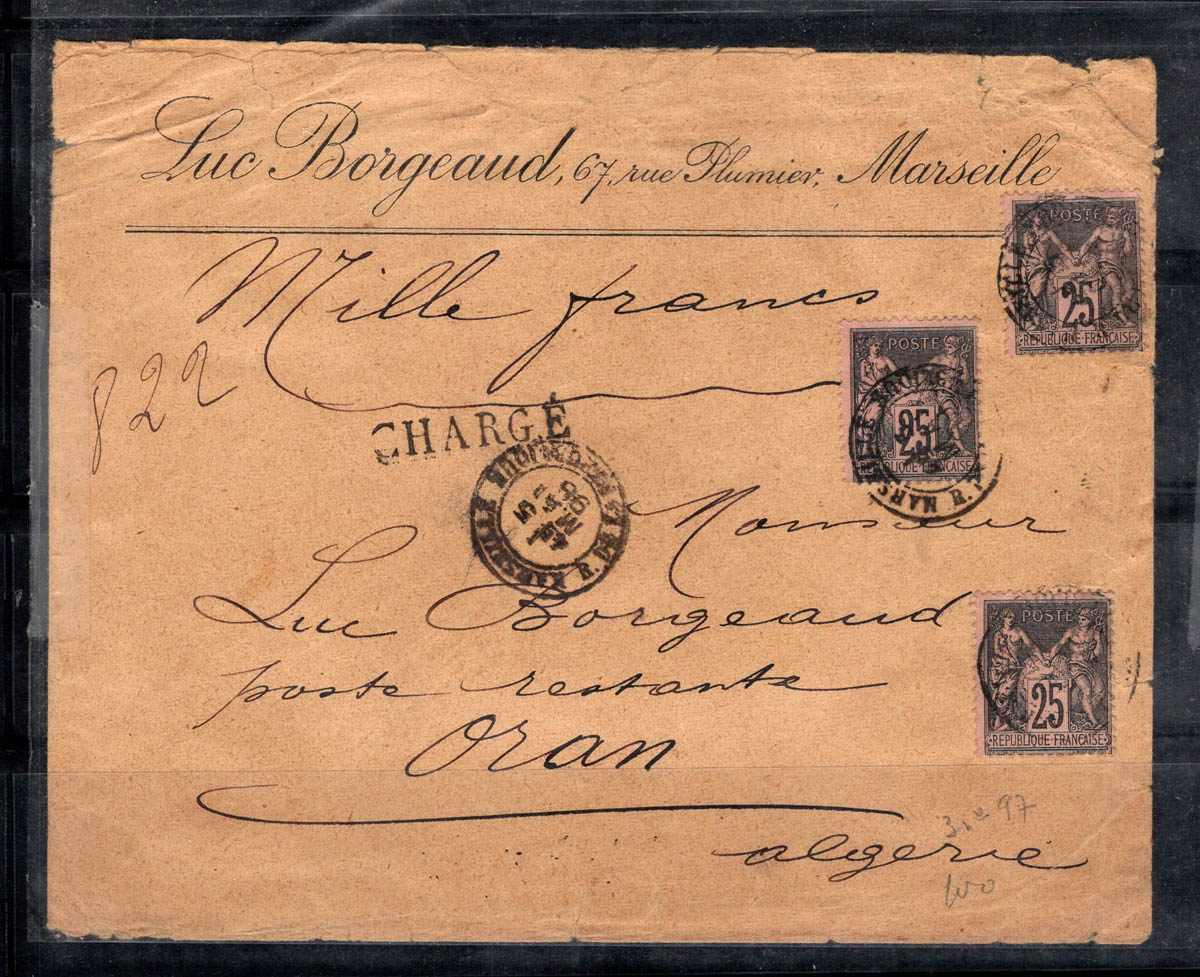 Luc Borgeaud, 67, rue Plumier, Marseille
Mille francs
822
CHARGÉ
POSTE
25
RÉPUBLIQUE FRANÇAISE
POSTE
25
RÉPUBLIQUE FRANÇAISE
MARSEILLE
Monsieur
Luc Borgeaud
poste restante
Oran
algérie
POSTE
25
RÉPUBLIQUE FRANÇAISE
97